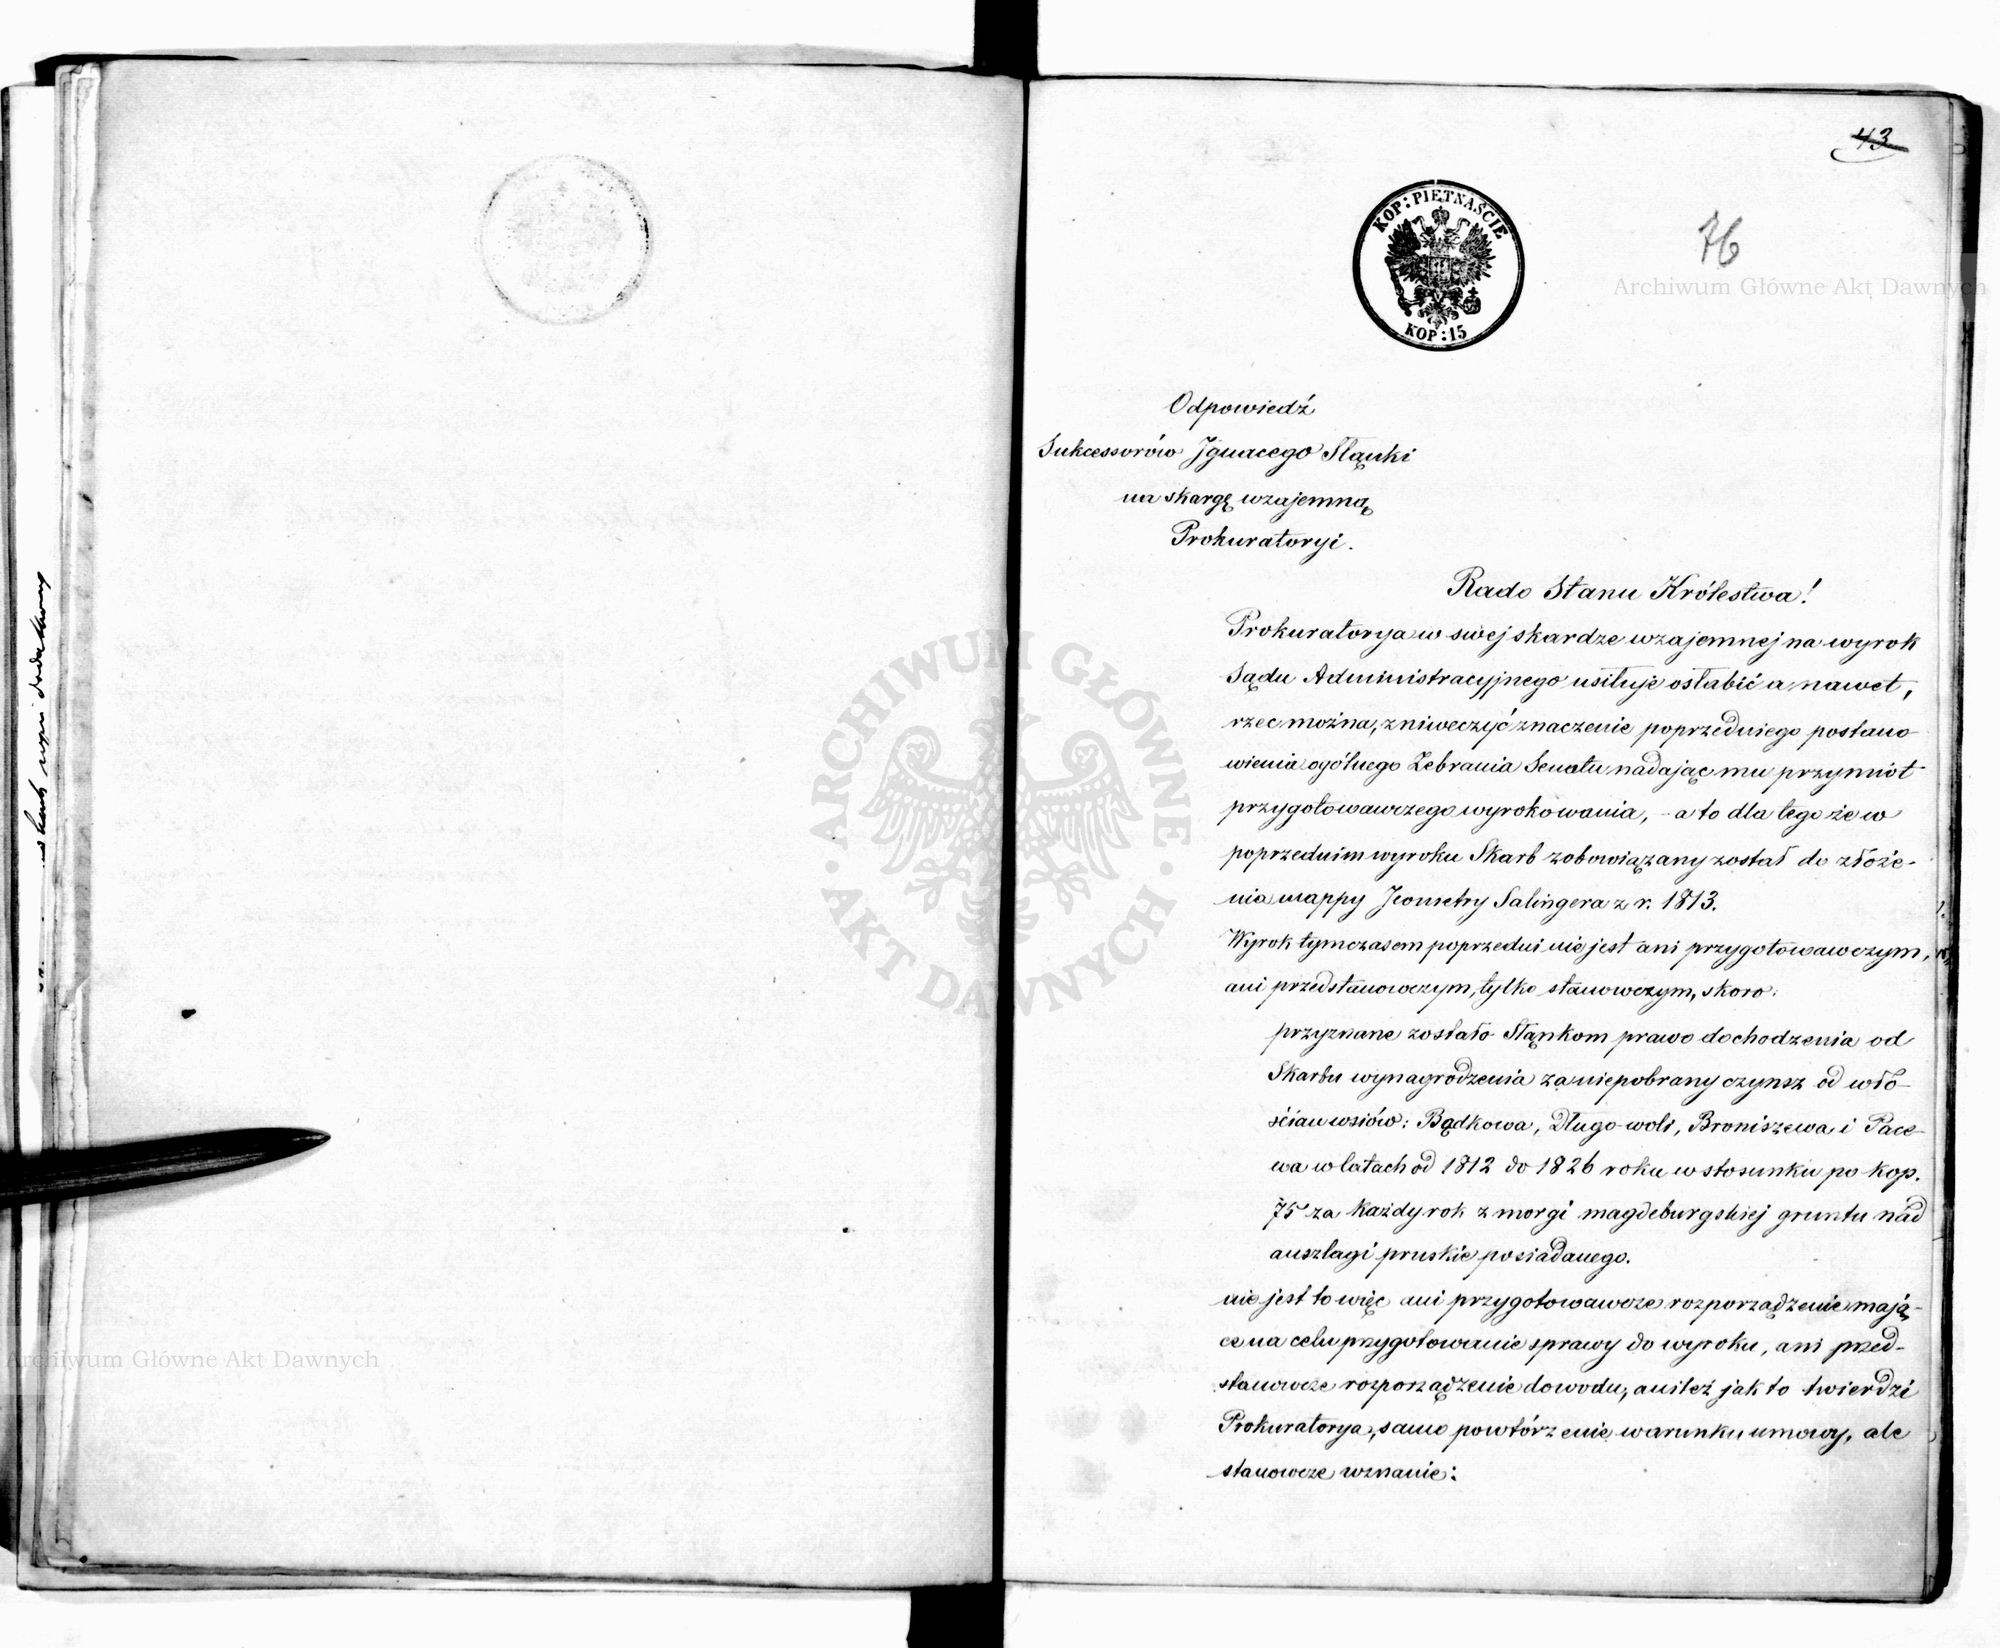 43
76
KOP: PIĘTNAŚCIE
KOP: 15
Odpowiedź
Sukcessorów Ignacego Stąnki
na skargę wzajemną
Prokuratoryi.
Rado Stanu Królestwa!
Prokuratorya w swej skardze wzajemnej na wyrok
Sądu Administracyjnego usiłuje osłabić a nawet,
rzec można, zniweczyć znaczenie poprzedniego postano-
wienia ogólnego Zebrania Senatu nadając mu przymiot
przygotowawczego wyrokowania, - a to dla tego że w
poprzednim wyroku Skarb zobowiązany został do złóże-
nia mappy Jeometry Salingera z r. 1813.
Wyrok tymczasem poprzedni nie jest ani przygotowawczym,
ani przedstanowczym, tylko stanowczym, skoro:
przyznane zostało Stąnkom prawo dochodzenia od
Skarbu wynagrodzenia za niepobrany czynsz od wło-
ścian wsiów: Bądkowa, Długo-woli, Broniszewa i Pace-
wa w latach od 1812 do 1826 roku w stosunku po kop.
75 za każdy rok z morgi magdeburgskiej gruntu nad
anszlagi pruskie posiadanego.
nie jest to więc ani przygotowawcze rozporządzenie mają-
ce na celu przygotowanie sprawy do wyroku, ani przed-
stanowcze rozporządzenie dowodu, ani też jak to twierdzi
Prokuratorya, samo powtórzenie warunku umowy, ale
stanowcze uznanie:
ARCHIWUM GŁÓWNE
AKT DAWNYCH
Archiwum Główne Akt Dawnych
Archiwum Główne Akt Dawnych